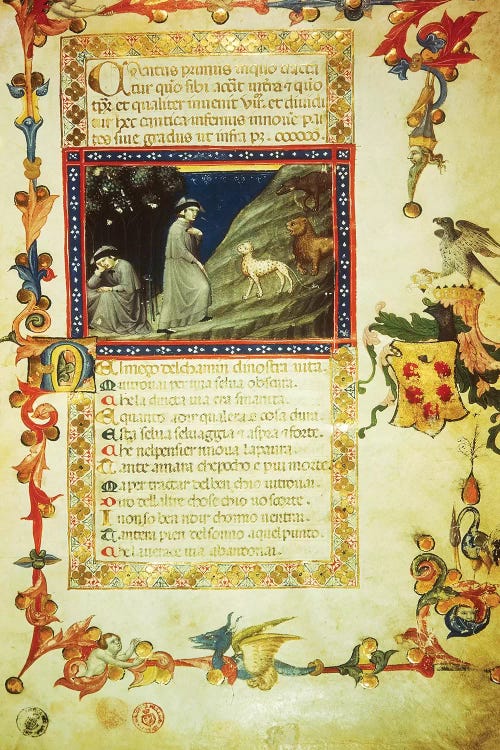 Cantus primus in quo tracta
tur quo sibi
et qualiter invenit
hec cantica infernus in novem par
tes sive gradus ut infra
Nel mezo del chamin di nostra vita.
Mi ritrovai per una selva obscura.
Che la dricta via era smarrita.
E quanto a dir qual era e cosa dura.
Esta selva selvaggia et aspra e forte.
Che nel pensier rinova la paura.
Tante amara che poche e piu morte.
Ma per tractar del ben chio vi trovai.
Diro dell altre chose chio vo scorte.
I non so ben ridir chomio nentrai.
Tantera pien del sonno a quel punto.
Che la verace via abandonai.